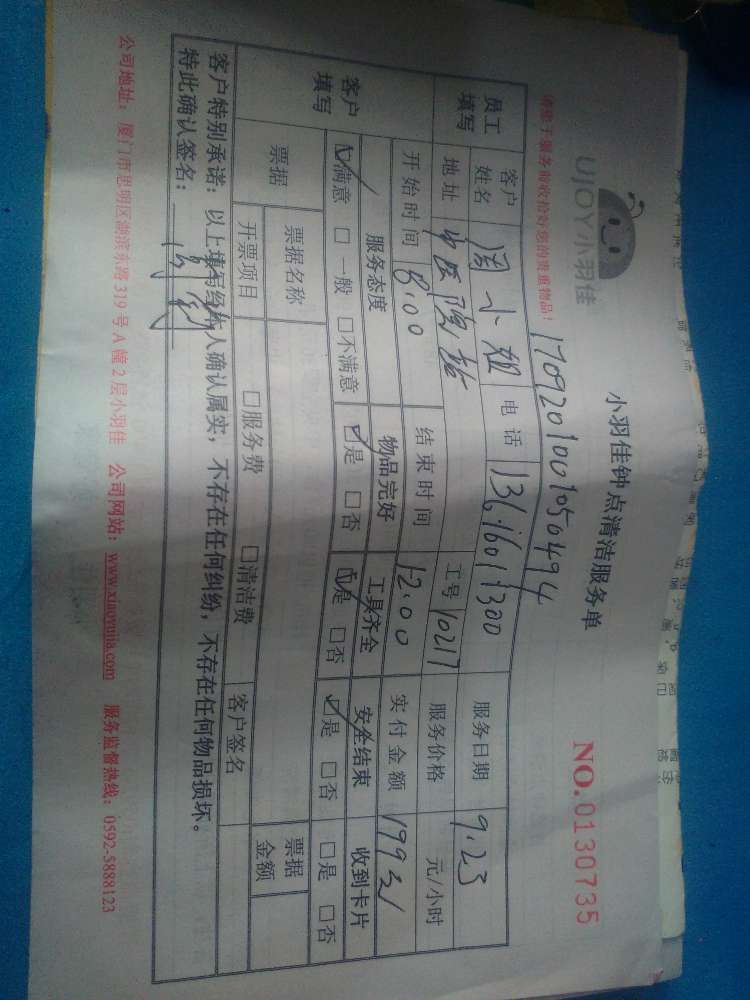 UJOY小羽佳
小羽佳钟点清洁服务单
NO.0130735
请于服务前收拾好您的贵重物品！
1709201001050494
员工填写 客户姓名 周小姐 电话 服务日期 9.23
地址 中医院站 工号 10217 服务价格 元/小时
开始时间 8:00 结束时间 12:00 实付金额 199元
客户填写 服务态度 物品完好 工具齐全 安全结束 收到卡片
☑满意 □一般 □不满意 ☑是 □否 ☑是 □否 ☑是 □否 □是 □否
票据 票据名称 客户签名 票据金额
开票项目 □服务费 □清洁费
客户特别承诺：以上填写经本人确认属实，不存在任何纠纷，不存在任何物品损坏。
特此确认签名：
公司地址：厦门市思明区湖滨东路319号A幢2层小羽佳 公司网站：www.xiaoyujia.com 服务监督热线：0592-5888123